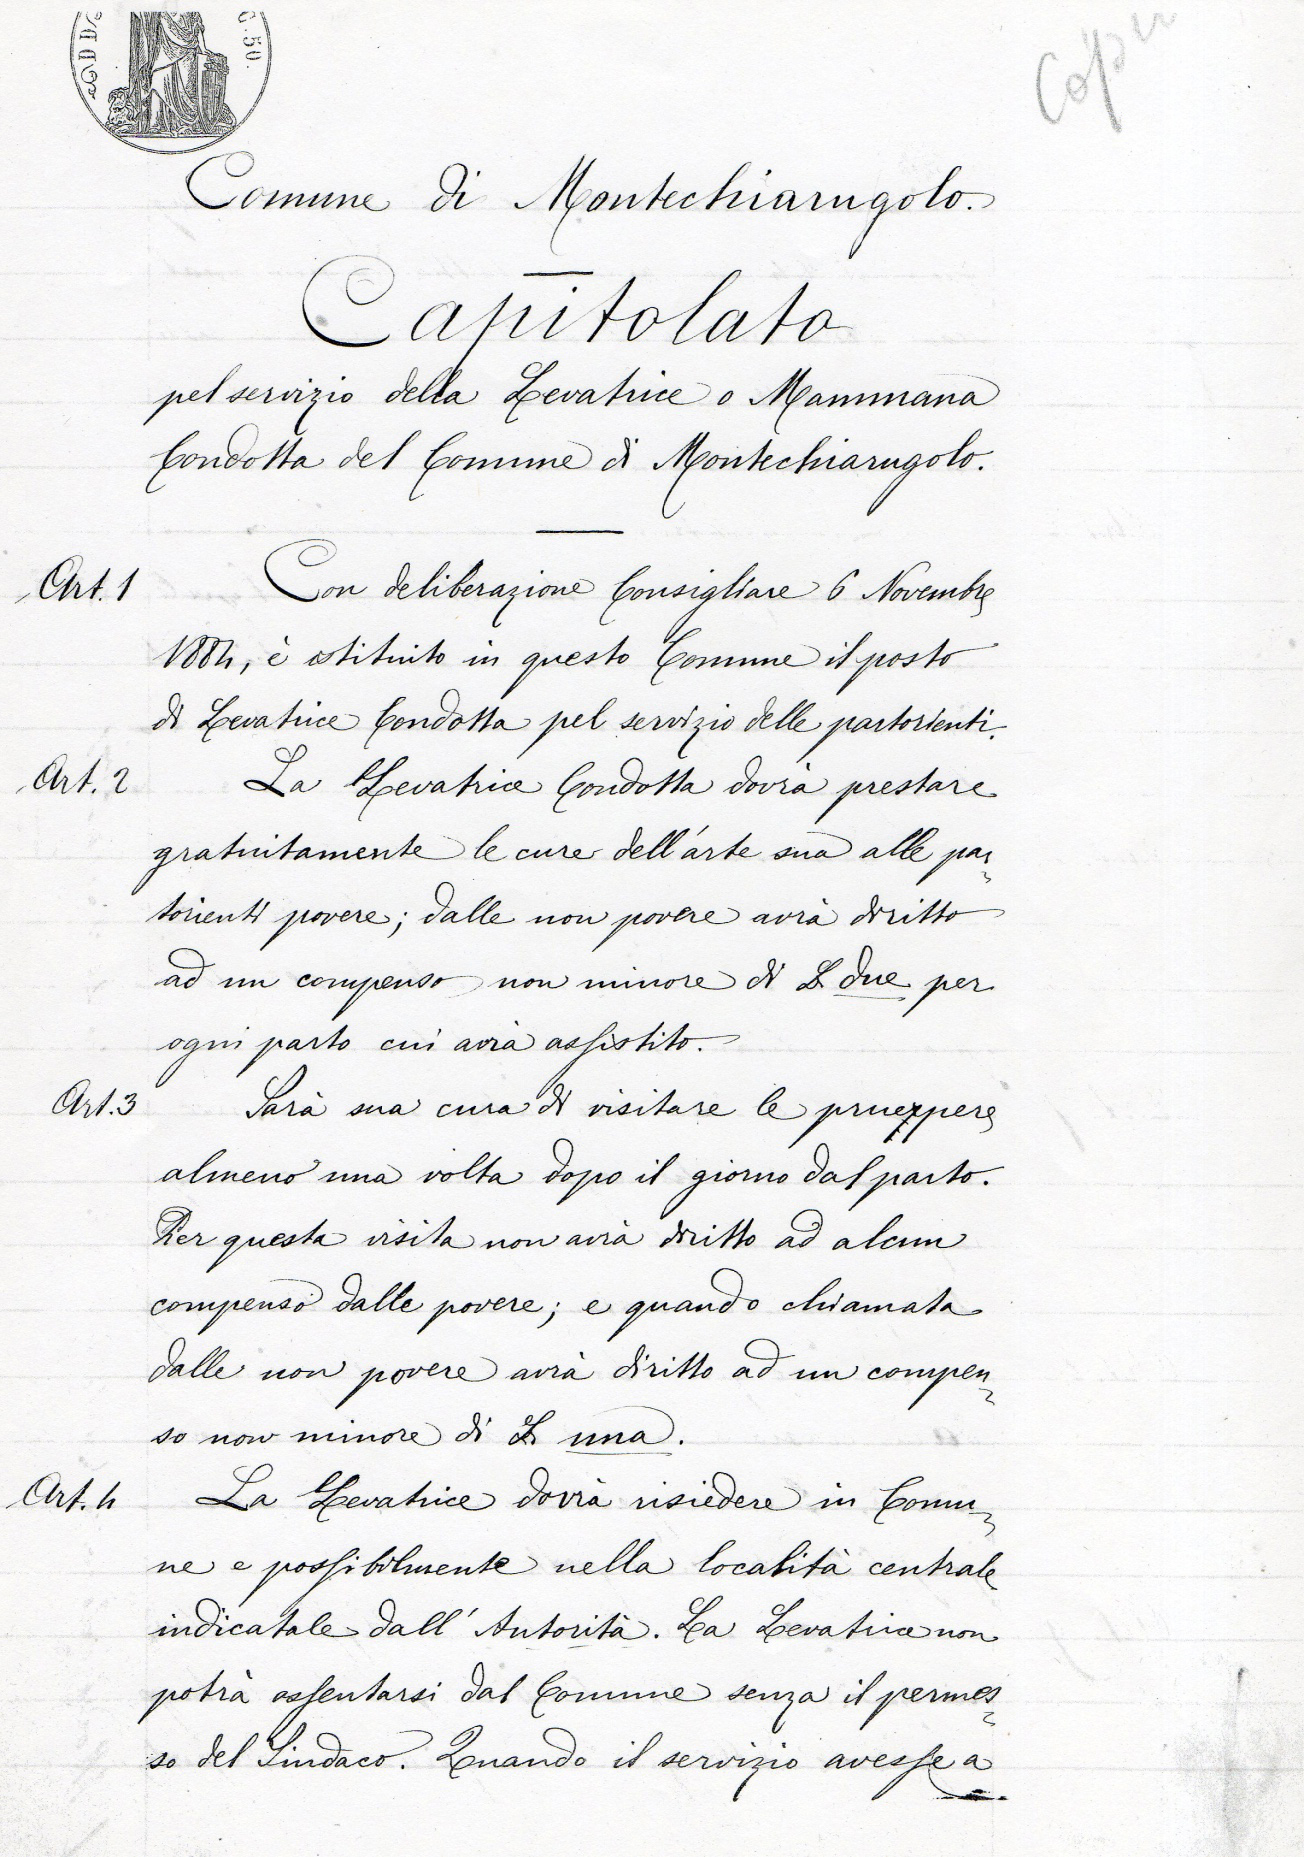 Copia
C. 50.
Comune di Montechiarugolo.
Capitolato
pel servizio della Levatrice o Mammana
Condotta del Comune di Montechiarugolo.
Art. 1 Con deliberazione Consigliare 6 Novembre
1884, è istituito in questo Comune il posto
di Levatrice Condotta pel servizio delle partorienti.
Art. 2 La Levatrice Condotta dovrà prestare
gratuitamente le cure dell'arte sua alle par¬
torienti povere; dalle non povere avrà diritto
ad un compenso non minore di L due per
ogni parto cui avrà assistito.
Art. 3 Sarà sua cura di visitare le pruerpere
almeno una volta dopo il giorno dal parto.
Per questa visita non avrà diritto ad alcun
compenso dalle povere; e quando chiamata
dalle non povere avrà diritto ad un compen¬
so non minore di L una.
Art. 4 La Levatrice dovrà risiedere in Comu¬
ne e possibilmente nella località centrale
indicatale dall'Autorità. La Levatrice non
potrà assentarsi dal Comune senza il permes¬
so del Sindaco. Quando il servizio avesse a